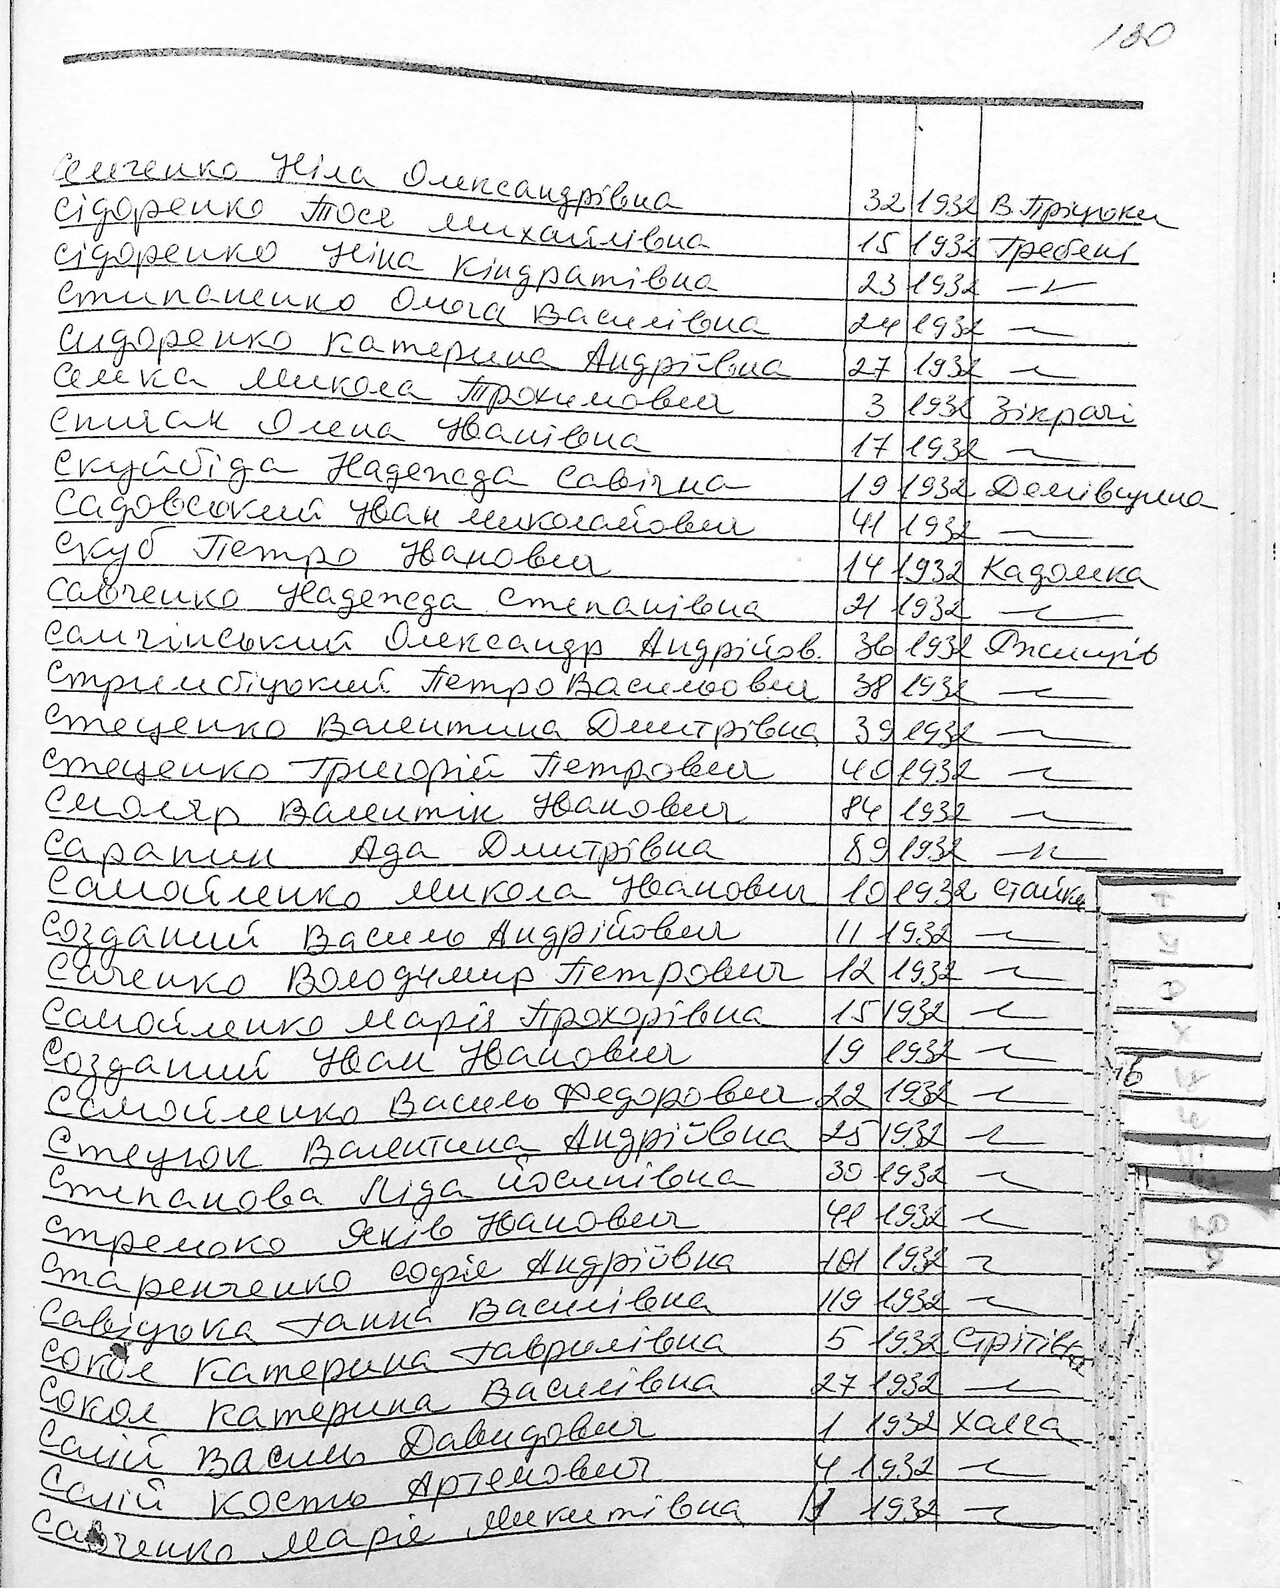 120
Семченко Ніла Олександрівна 32 1932 В Пріцьки
Сідоренко Тося Михайлівна 15 1932 Гребені
Сідоренко Ніна Кіндратівна 23 1932 —"—
Степаненко Ольга Василівна 24 1932 —"—
Сидоренко Катерина Андріївна 27 1932 —"—
Семка Микола Трохимович 3 1932 Зікрачі
Спичак Олена Іванівна 17 1932 —"—
Скуйбіда Надежда Савічна 19 1932 Демівщина
Садовський Іван Миколайович 41 1932 —"—
Скуб Петро Іванович 14 1932 Кадомка
Савченко Надежда Степанівна 21 1932 —"—
Самчінський Олександр Андрійов. 36 1932 Ржищів
Стримбіцький Петро Васильович 38 1932 —"—
Стеценко Валентина Дмитрівна 39 1932 —"—
Стеценко Григорій Петрович 40 1932 —"—
Смоляр Валентін Іванович 84 1932 —"—
Сарапин Ада Дмитрівна 89 1932 —"—
Самойленко Микола Іванович 10 1932 Стайки
Созданий Василь Андрійович 11 1932 —"—
Саченко Володимир Петрович 12 1932 —"—
Самойленко Марія Прохорівна 15 1932 —"—
Созданий Іван Іванович 19 1932 —"—
Самойленко Василь Федорович 22 1932 —"—
Стецюк Валентина Андріївна 25 1932 —"—
Степанова Ліда Йосипівна 30 1932 —"—
Стремоко Яків Іванович 41 1932 —"—
Старенченко Софія Андріївна 101 1932 —"—
Савіцька Ганна Василівна 119 1932 —"—
Сокол Катерина Гаврилівна 5 1932 Стрітівка
Сокол Катерина Василівна 27 1932 —"—
Салій Василь Давидович 1 1932 Халча
Салій Кость Артемович 4 1932 —"—
Савченко Марія Микитівна 11 1932 —"—